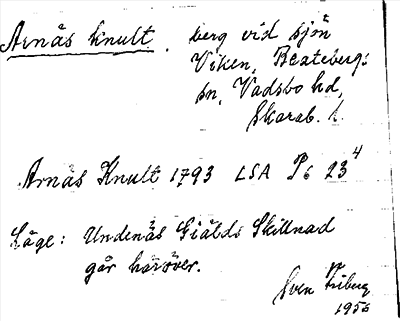 Arnäs knult. berg vid sjön
Viken, Beatebergs
sn, Vadsbo hd,
Skarab. l.
Arnäs Knult 1793 LSA P6 23⁴
Läge: Undenäs Giälds Skillnad
går häröver.
Sven Friberg
1955